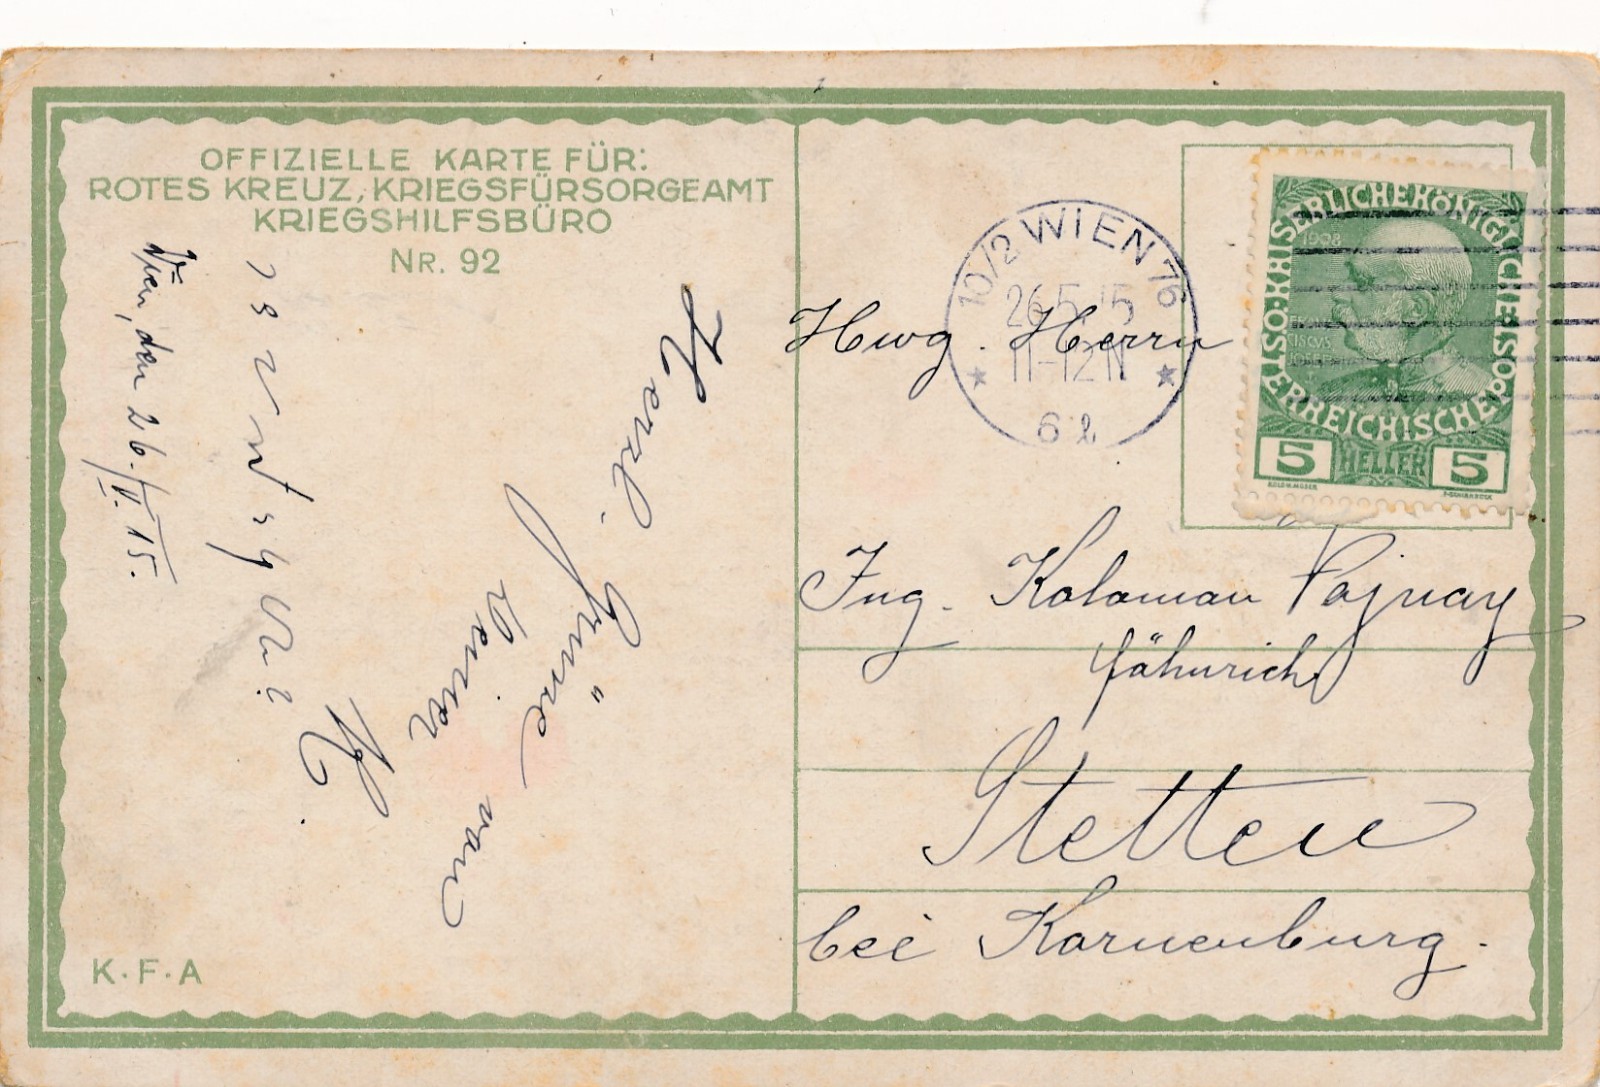 OFFIZIELLE KARTE FÜR:
ROTES KREUZ, KRIEGSFÜRSORGEAMT
KRIEGSHILFSBÜRO
NR. 92
Wien, den 26./V. 15.
Herzl.
Grüße von
Deiner
K. F. A
10/2 WIEN 76
26.5.15
11-12 N
6
1908
KAISERLICHE KÖNIGLICHE ÖSTERREICHISCHE
5 HELLER 5
Hwg. Herrn
Ing. Kolaman Pajnay
Fähnrich
Stetten
bei Korneuburg.